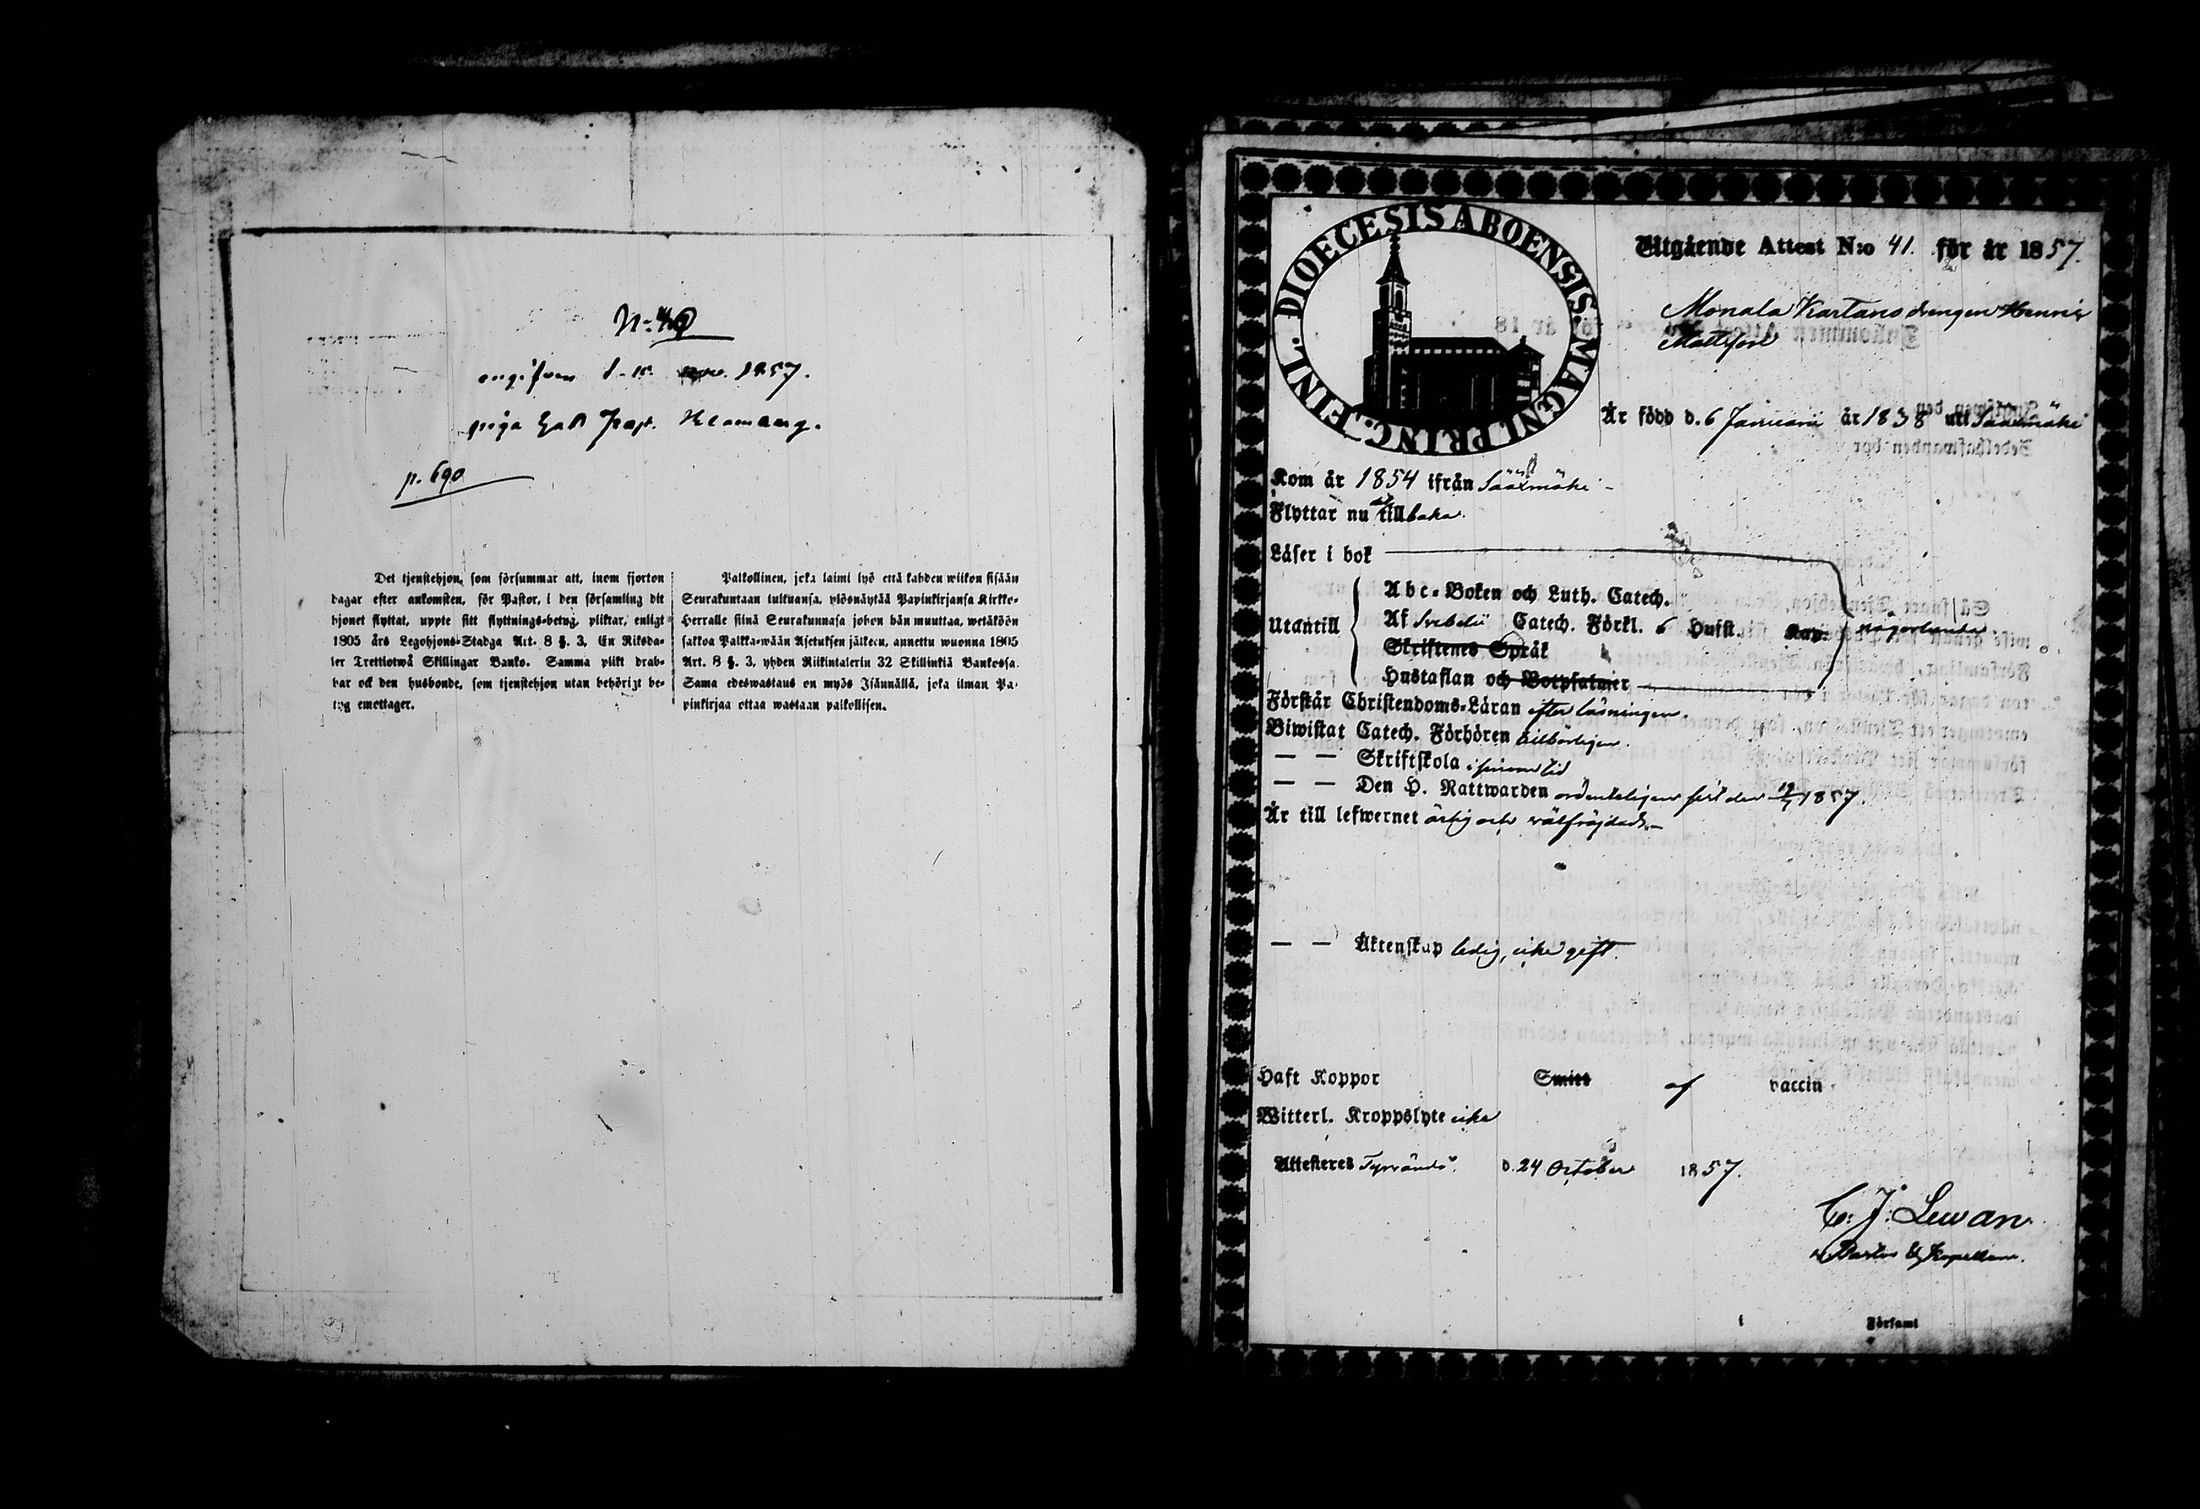 N:o 40
angifven d. 15 nov. 1857.
piga
p. 690
Det tjenstehjon, som försummar att, inom fjorton
dagar efter ankomsten, för Pastor, i den församling dit
hjonet flyttat, uppte sitt flyttnings-betyg, pliktar, enligt
1805 års Legohjons-Stadga Art. 8 §. 3, En Riksda-
ler Trettiotwå Skillingar Banko. Samma plikt drab-
bar ock den husbonde, som tjenstehjon utan behörigt be-
tyg emottager.
Palkollinen, joka laimi lyö että kahden wiikon sisään
Seurakuntaan tultuansa, ylösnäytää Papinkirjansa Kirkko-
Herralle siinä Seurakunnasa johon hän muuttaa, wetäköön
sakkoa Palkka-wään Asetuksen jälkeen, annettu wuonna 1805
Art. 8 §. 3, yhden Riikintalerin 32 Skillinkiä Bankossa.
Sama edeswastaus on myös Isännällä, joka ilman Pa-
pinkirjaa ottaa wastaan palkollisen.
DIOECESIS ABOENSIS. MAGNI. PRINC. FINL.
Utgående Attest N:o 41. för år 1857.
Monala Kartano drengen Henric
Mattsson
Är född d. 6 Januarii år 1838 uti Sääxmäki
Kom år 1854 ifrån Sääxmäki
Flyttar nu åter tillbaka.
Läser i bok
Utantill
Abc-Boken och Luth. Catech.
Af Svebelii Catech. Förkl. 6 Hufst. Kap.
Skriftenes Språk
Hustaflan och Botpsalmer
någorlunda
Förstår Christendoms-Läran efter läsningen.
Biwistat Catech. Förhören tillbörligen.
— — Skriftskola i sinom tid
— — Den H. Nattwarden ordenteligen sist den 1857.
Är till lefwernet ärlig och välfrejdad.
— — Äktenskap ledig, icke gift.
Haft Koppor Smitt af vaccin
Witterl. Kroppslyte icke
Attesteres Tyrvändö d. 24 October 1857.
C. J. Lewan
Kapellan.
i Församl